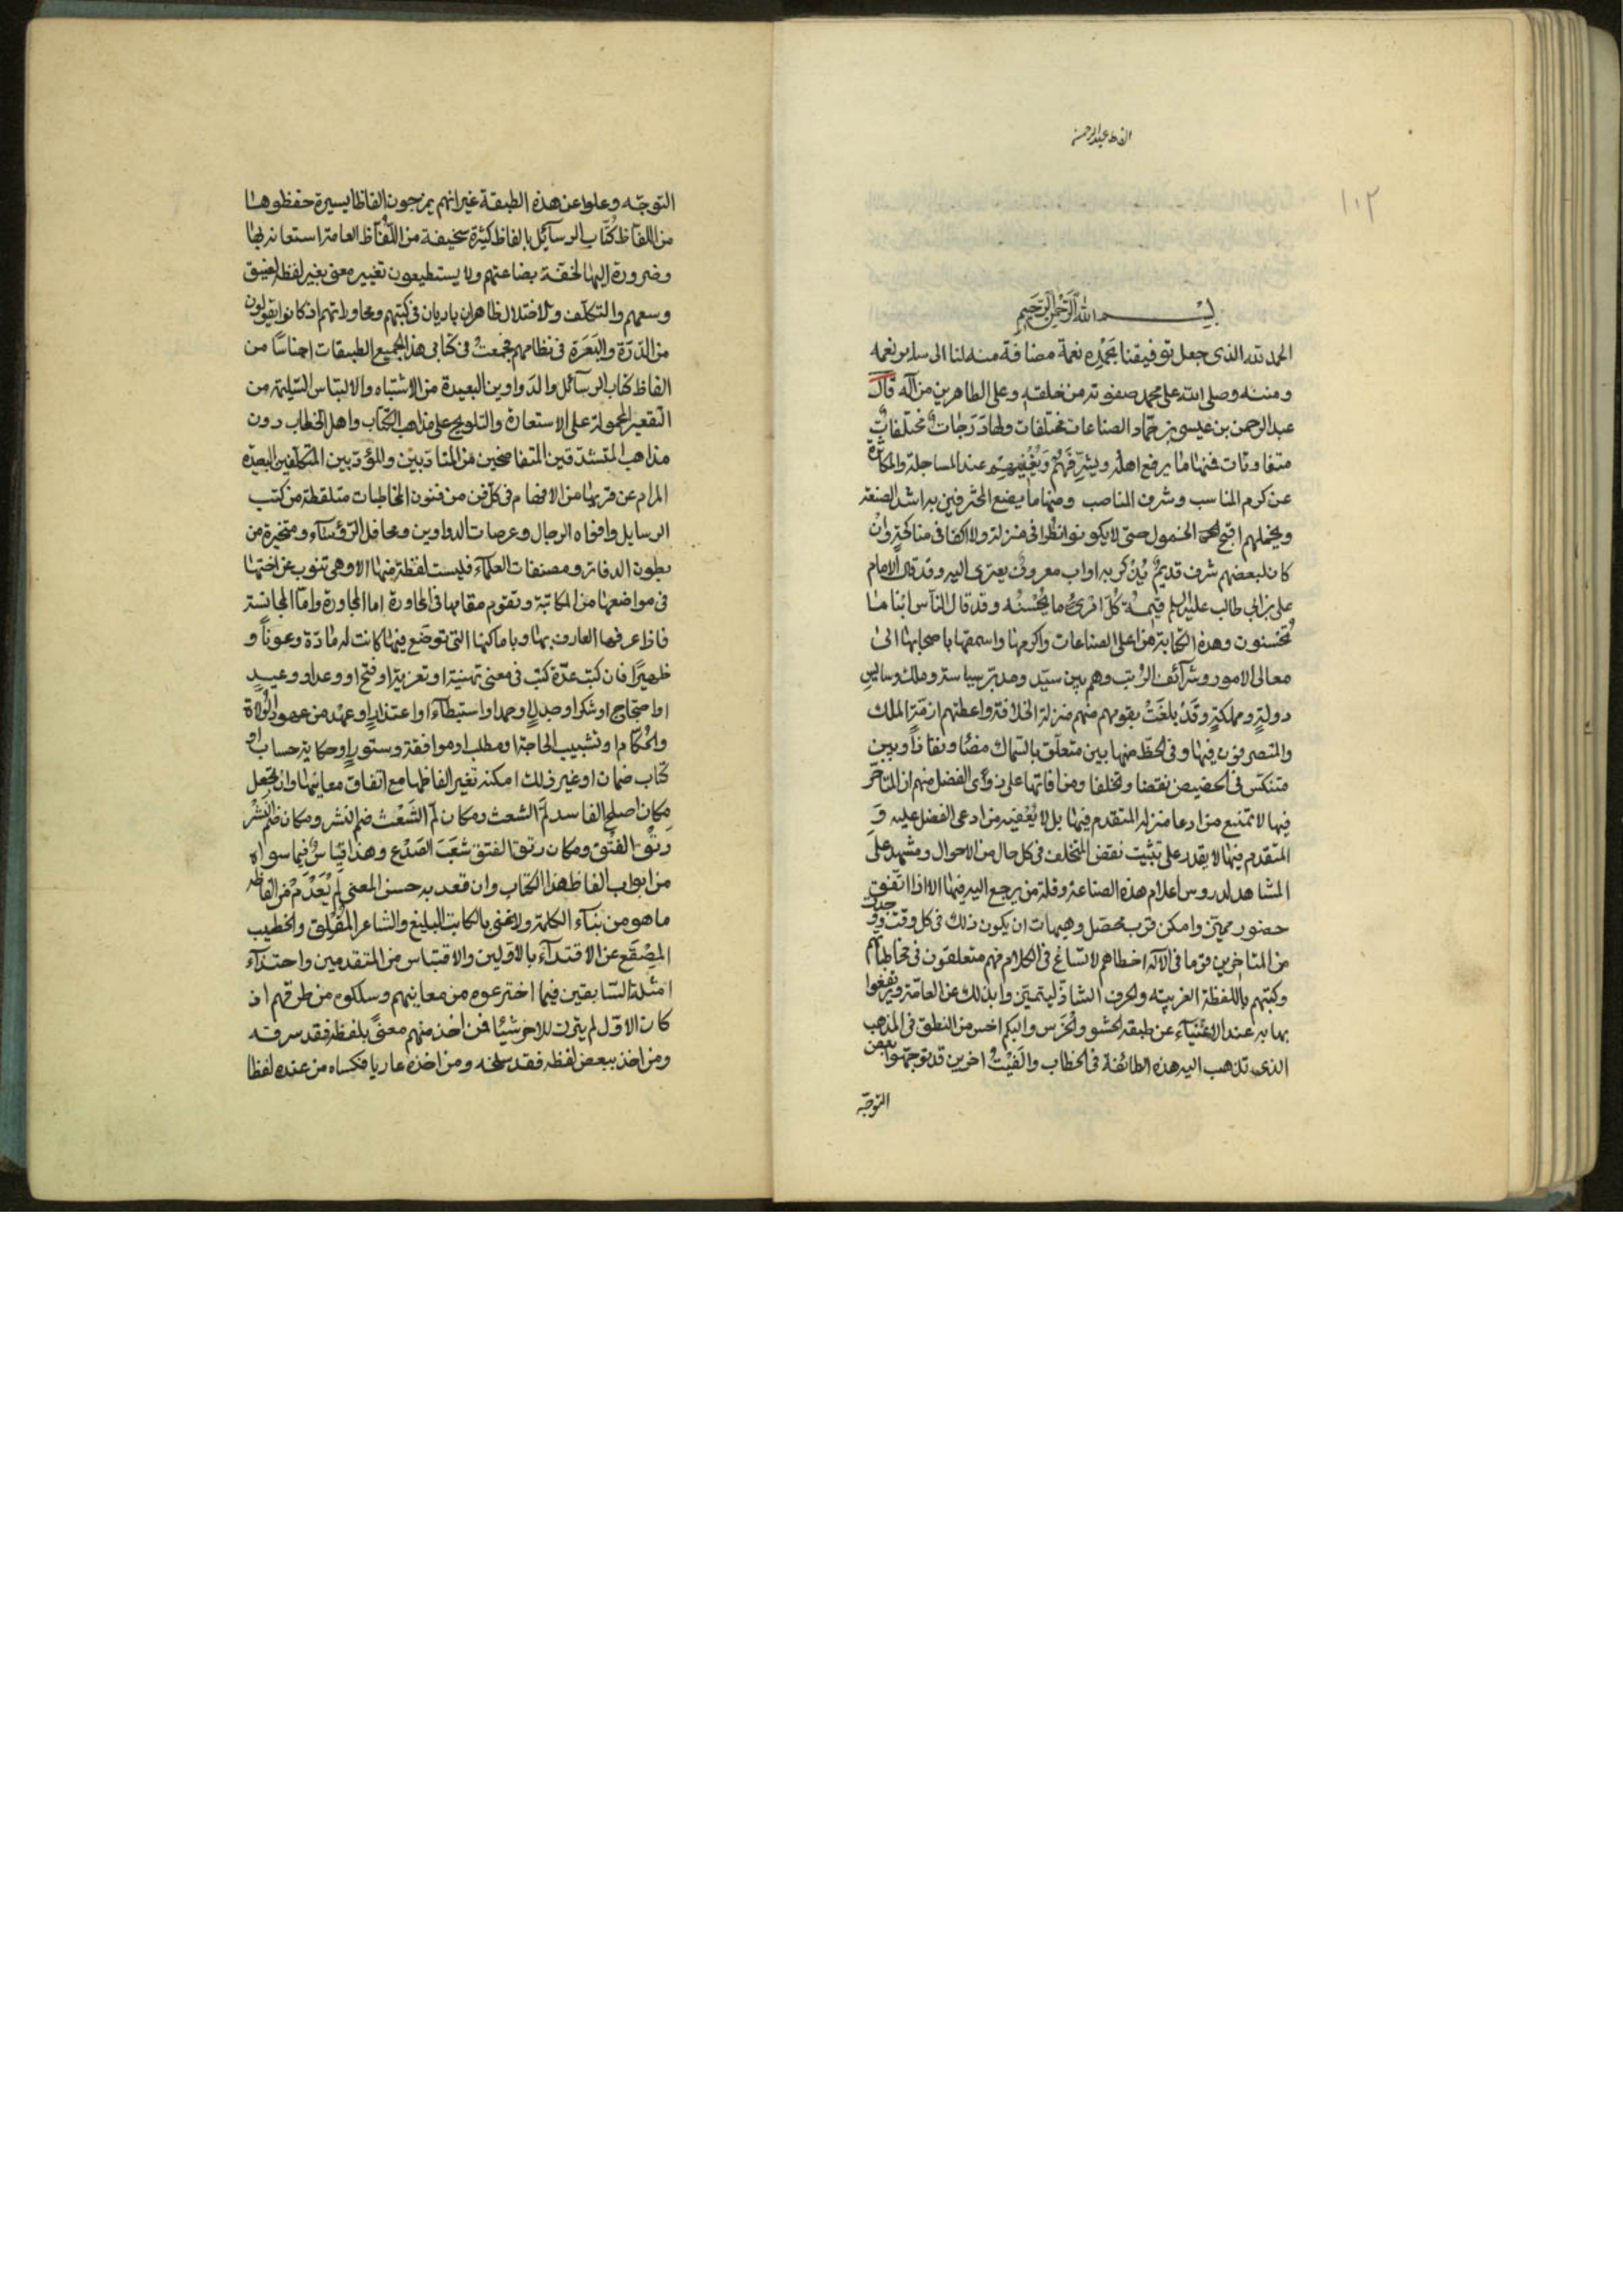 الفاظ عبد الرحمن
١٠٢
بسم الله الرحمن الرحيم
الحمد لله الذى جعل توفيقنا بحَمْدِه نعمة مضافة منه لنا الى سابر نعمه
ومننه وصلى الله على محمد صفوته من خلقه وعلى الطاهرين من آله قال
عبد الرحمن بن عيسى بن حمّاد الصناعات مختلفات ولها دَرَجات مختلفات
متفاوتات فمنها ما يرفع اهله ويشرّفهُم ويُغْنِيهم عند المساجلة والمكاثرة
عن كرم المناسب وشرف المناصب ومنها ما يضع المحترفين به اشد الضعة
ويخملهم اقبح الخمول حتى لا يكونوا نظرا فى منزلة ولا اكفا فى مناكحةٍ وانْ
كان لبعضهم شرف قديمٌ يُذكر به او اب معروفٌ يعتزى اليه وقد قال الامام
على بن ابى طالب عليه السلم قيمة كُلّ امْرِئٍ ما يُحْسِنُه وقد قال الناس ابنا ما
يُحْسنون وهذه الكتابة من اعلى الصناعات واكرمها واسمقها باصحابها الى
معالى الامور وشرآئف الرُتب وهم بين سيّد ومدبّر سياسة وملك وسايسِ
دولةٍ ومملكةٍ وقَدْ بلغَتْ بقومهم منهم منزلة الخلافة واعطتهم ازمّة الملك
والمتصرفون فيها وفى الحظّ منها بين متعلّق بالسّماك مضًا ونفاذاً وبين
متنكّس فى الحضيض نقضا وتخلفا ومن افاتها على ذوى الفضل منهم ان المتأخّر
فيها لا يمتنع من ادعا منزلة المتقدم فيها بل لا يُعْفيه من ادعى الفضل عليه وَ
المتقدم فيها لا يقدر على تثبيت نقض المتخلف فى كل حال من الاحوال ومشهد على
المشاهد لدروس اعلام هذه الصناعة وقلة من يرجع اليه فيها الا اذا اتّفق
حضور مميّز وامكن قرب محصّل وهيهات ان يكون ذلك فى كل وقت ووجدت
من المتاخرين قوما فى الآلة اخطاهم الاتساغ فى الكلام فهم متعلقون فى مخاطباتهم
وكتبهم باللفظة الغريبة والحرف الشاذّ ليتميّزوا بذلك عن العامّة ويرتفعوا
بها به عند الاغنياء عن طبقة الحشو والخَرَس والبكم احسن من النطق فى المذهب
الذى تذهب اليه هذه الطائفة فى الخطاب والفَيْتُ اخرين قد توجهّوا بعض
التوجّه
التوجّه وعلوا عن هذه الطبقة غير انهم يمزجون الفاظا يسيرة حفظوها
من الفاظ كُتّاب الرسآئل بالفاظ كثيرة سخيفة من الفآظ العامة استعانة بها
وضرورة اليها لخفّة بضاعتهم ولا يستطيعون تغيير معنى بغير لفظه لضيق
وسعهم والتكلّف والاختلال ظاهران باديان فى كتبهم ومحاوراتهم اذ كانوا يقولون
من الدّرّة والبَعَرة فى نظامهم فجمعتْ فى كتابى هذا لجميع الطبقات اجناسًا من
الفاظ كتاب الرسآئل والدواوين البعيدة من الاشتباه والالتباس السّليمة من
التّقعير المحمولة على الاستعارة والتلويح على مذاهب الكتّاب واهل الخطاب دون
مذاهب المتشدّقين المتفاصحين من المتادّبين والمؤدّبين المتكلّفين البعيدة
المرام عن قربها من الافهام فى كلّ فن من فنون المخاطبات متلقطة من كتب
الرسايل وافواه الرجال وعرصات الدواوين ومحافل الرؤسآء ومتخيرة من
بطون الدفاتر ومصنفات العلمآء فليست لفظة منها الا وهى تنوب عن اختها
فى مواضعها من المكاتبة وتقوم مقامها فى المحاورة اما المجاورة واما المجانسة
فاذا عرفها العارف بها وباماكنها التى توضَع فيها كانت له مادّة وعوناً و
ظهيرًا فان كتب عدّة كتب فى معنى تهنية او تعزية او فتح او وعد او وعيد
او احتجاج او شكر او جدل او حمد او استبطآء او اعتذار او عهد من عهود الولاة
والحُكّام او تشبيب الحاجة او مطلب او موافقة وستور او حكاية حساب او
كتاب ضمان او غير ذلك امكنه تغير الفاظها مع اتفاق معانيها وان يجعل
مكان اصلح الفاسد لمّ الشعث ومكان لمّ الشَعْث ضم النشر ومكان ضم النشر
رتْق الفتْق ومكان رتق الفتق شَعَبَ الصَدْع وهذا قياسٌ فيما سواه
من ابواب الفاظ هذا الكتاب وان قعد به حسن المعنى لم يَعْدَم من الفاظه
ما هو من بنآء الكلمة ولا غنى بالكاتب البليغ والشاعر المُفْلِق والخطيب
المِصْقَع عن الاقتدآء بالاوّلين والاقتباس من المتقدمين واحتذآء
امثلة السّابقين فيما اخترعوه من معانيهم وسلكوه من طرقهم اذ
كان الاوّل لم يترك للاخر شيئا فمن اخذ منهم معنًى بلفظه فقد سرقه
ومن اخذ ببعض لفظه فقد سلخه ومن اخذه عاريا فكساه من عنده لفظا